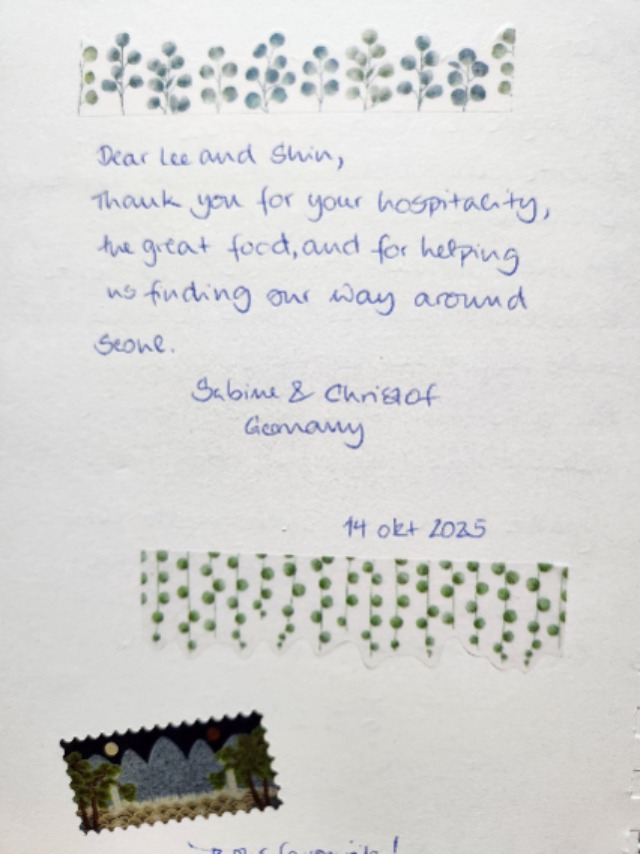 Dear Lee and Shin,
Thank you for your hospitality,
the great food, and for helping
us finding our way around
Seoul.
Sabine & Christof
Germany
14 okt 2025